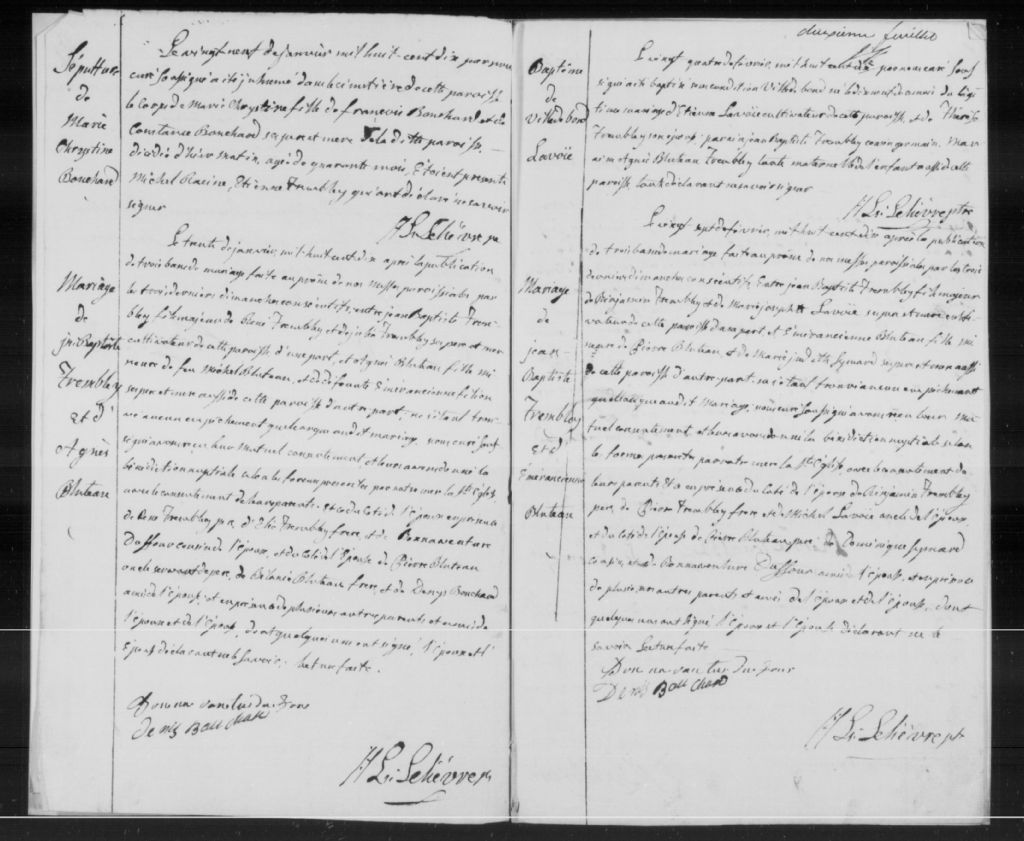 Sépulture
de
Marie
Chrystine
Bouchard
Le vingt neuf de janvier mil huit cent dix par nous
curé soussigné a été inhumé dans le cimetière de cette paroisse
le Corps de Marie Chrystine fille de francois Bouchard et de
Constance Bouchard ses pere et mere de la ditte paroisse
décédée d'hier matin, agée de quarante mois, Etoient presents
Michel Racine, Etienne Trembley qui ont déclaré ne savoir
signer
Ls Lelièvre ptr
Mariage
de
jn Baptiste
Trembley
et d'
Agnès
Bluteau
Le trente de janvier mil huit cent dix après la publication
de trois bans de mariage faite au prône de nos Messes paroissiales par
les trois derniers dimanches consécutifs, entre jean Baptiste Trem-
bley fils majeur de René Trembley et de Trembley ses pere et mere
cultivateur de cette paroisse d'une part, et Agnès Bluteau fille mi
neure de feu Michel Bluteau, et de défunte Emérancienne filion
ses pere et mere aussi de cette paroisse d'autre part; ne s'étant trou
vé aucun empêchement quelconque audit mariage, nous curé sous
signé avons reçu leur Mutuel consentement et leur avons donné la
bénédiction nuptiale selon la forme prescrite par notre mere la Ste Eglise
avec le consentement de leurs parents, et ce du coté de l'époux en presence
de René Trembley pere, d' Trembley frere, et de Bonnaventure
Duffour cousin de l'époux, et du coté de l'Epouse de Pierre Bluteau
oncle servant de pere, de Bluteau frere, et de Denys Bouchard
ami de l'épouse, et en présence de plusieurs autres parents et amis de
l'époux et de l'épouse, dont quelques uns ont signé, l'époux et l'
épouse déclarant ne le savoir. lecture faite.
Bonna vantur du four
Denis Bouchard
Ls Lelièvre ptr
deuxieme feuille
Baptême
de
Villebond
Lavoïe
Le vingt quatre de fevrier, mil huit cent dix par nous curé sous
signé a été baptisé sous condition Villebond né le dix neuf du mois du légi
time mariage d'Etienne Lavoïe cultivateur de cette paroisse, et de Therèse
Trembley son épouse; parain jean Baptiste Trembley cousin germain, Mar
raine Agnès Bluteau Trembley tante maternelle de l'enfant aussi de cette
paroisse, tous déclarant ne savoir signer
Ls Lelièvre ptre
Mariage
de
jean
Baptiste
Trembley
et d'
Emérancienne
Bluteau
Le vingt sept de fevrier, mil huit cent dix après la publication
de trois bans de mariage faite au prône de nos messes paroissiales par les trois
derniers dimanches consécutifs Entre jean Baptiste Trembley fils majeur
de Benjamin Trembley et de Marie josephte Lavoïe ses pere et mere culti
vateur de cette paroisse d'une part, et Emérancienne Bluteau fille mi
neure de Pierre Bluteau, et de Marie judith Symard ses pere et mere aussi
de cette paroisse d'autre part; ne s'étant trouvé aucun empêchement
quelconque audit Mariage, nous curé soussigné avons reçu leur mu
tuel consentement et leur avons donné la bénédiction nuptiale selon
la forme prescrite par notre mere la Ste Eglise avec le consentement de
leurs parents et ce en présence du coté de l'époux de Benjamin Trembley
pere, de Pierre Trembley frere et de Michel Lavoïe oncle de l'époux,
et du coté de l'épouse de Pierre Bluteau pere, de Dominique Symard
cousin, et de Bonnaventure Duffour ami de l'épouse, et en présence
de plusieurs autres parents et amis de l'époux et de l'épouse, dont
quelques uns ont signé l'époux et l'épouse déclarant ne le
savoir Lecture faite
Bon na van tur du four
Denis Bouchard
Ls Lelièvre ptr